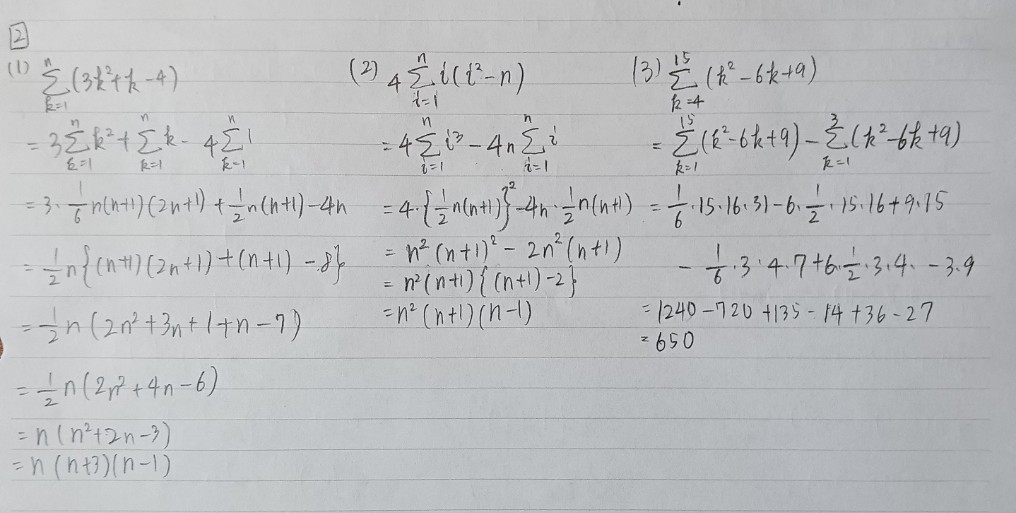 2
(1) $\sum_{k=1}^{n}(3k^2+k-4)$
$=3\sum_{k=1}^{n}k^2+\sum_{k=1}^{n}k-4\sum_{k=1}^{n}1$
$=3\cdot\frac{1}{6}n(n+1)(2n+1)+\frac{1}{2}n(n+1)-4n$
$=\frac{1}{2}n\{(n+1)(2n+1)+(n+1)-8\}$
$=\frac{1}{2}n(2n^2+3n+1+n-7)$
$=\frac{1}{2}n(2n^2+4n-6)$
$=n(n^2+2n-3)$
$=n(n+3)(n-1)$
(2) $4\sum_{i=1}^{n}i(i^2-n)$
$=4\sum_{i=1}^{n}i^3-4n\sum_{i=1}^{n}i$
$=4\cdot\{\frac{1}{2}n(n+1)\}^2-4n\cdot\frac{1}{2}n(n+1)$
$=n^2(n+1)^2-2n^2(n+1)$
$=n^2(n+1)\{(n+1)-2\}$
$=n^2(n+1)(n-1)$
(3) $\sum_{k=4}^{15}(k^2-6k+9)$
$=\sum_{k=1}^{15}(k^2-6k+9)-\sum_{k=1}^{3}(k^2-6k+9)$
$=\frac{1}{6}\cdot15\cdot16\cdot31-6\cdot\frac{1}{2}\cdot15\cdot16+9\cdot15$
$-\frac{1}{6}\cdot3\cdot4\cdot7+6\cdot\frac{1}{2}\cdot3\cdot4\cdot-3\cdot9$
$=1240-720+135-14+36-27$
$=650$